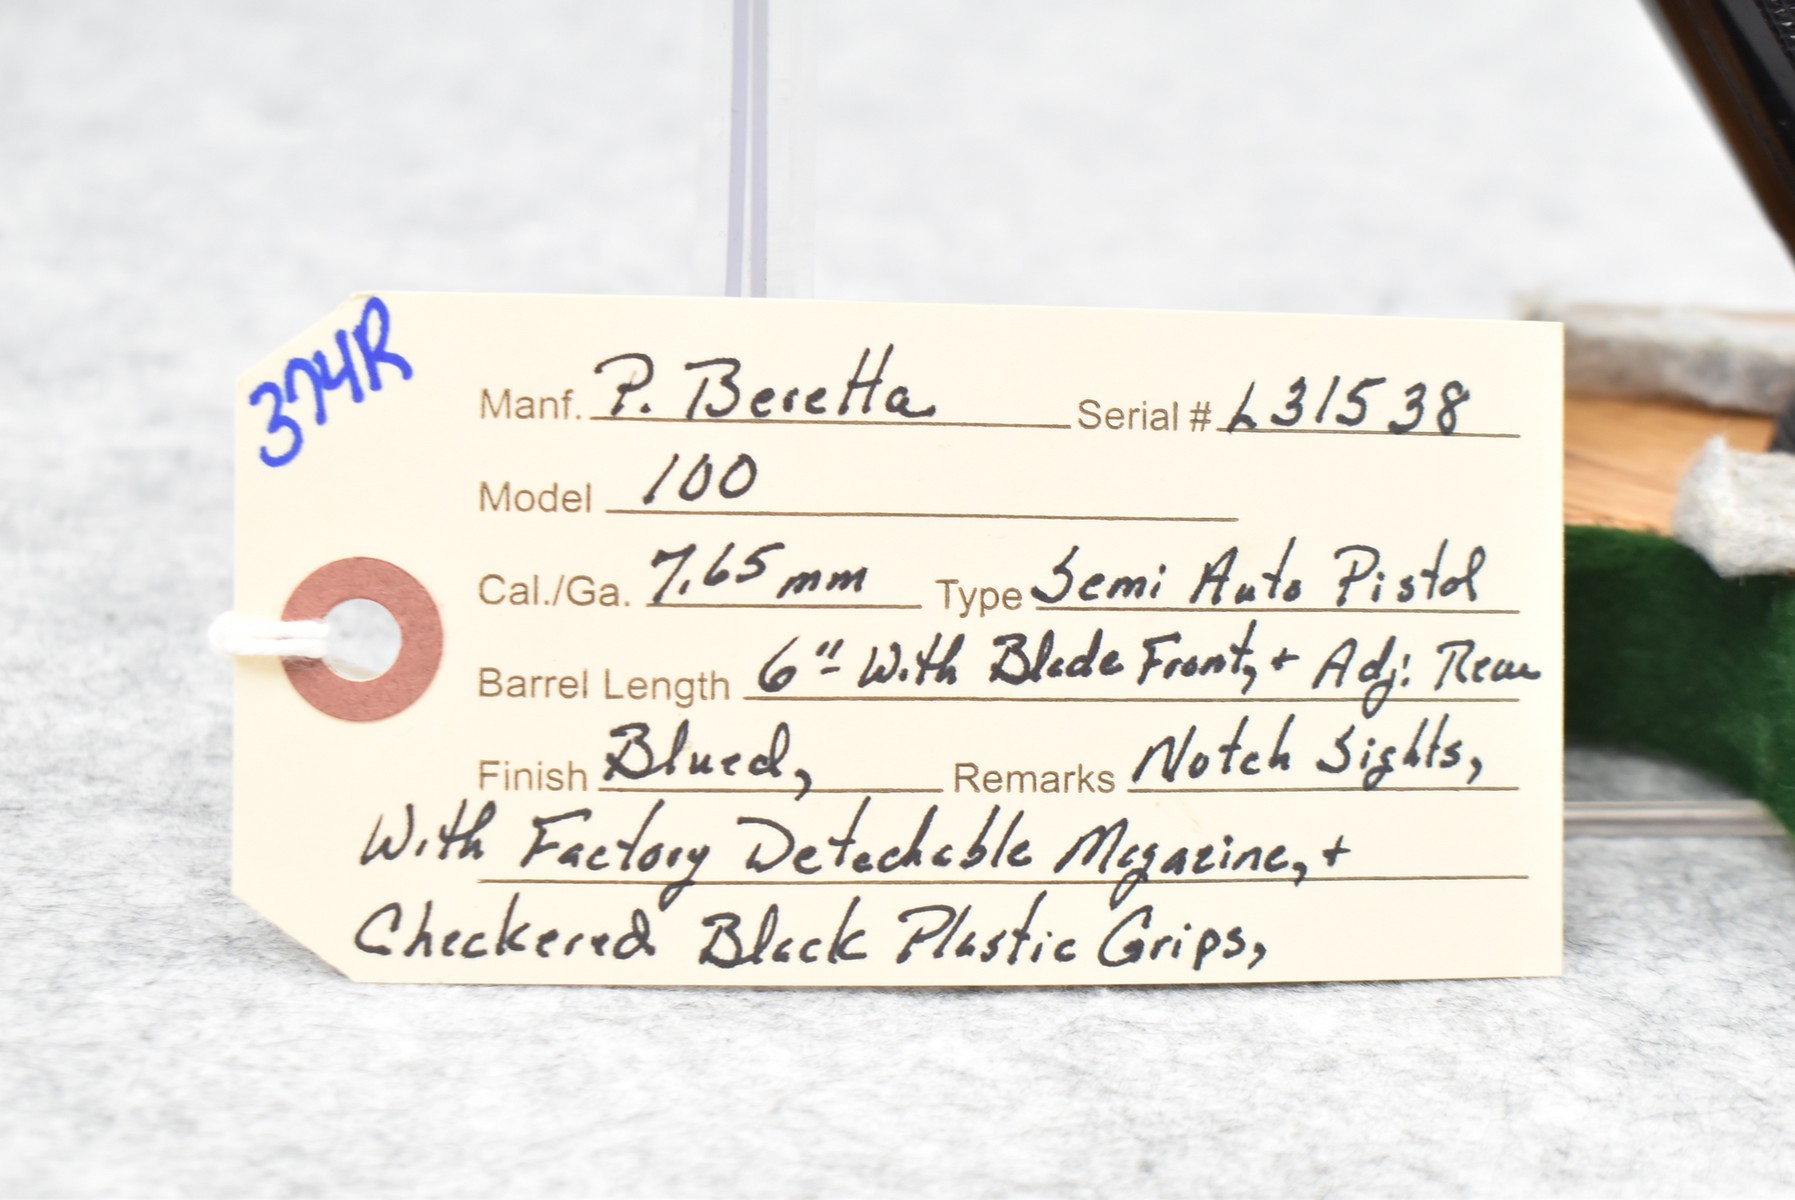 374R
Manf. P. Beretta Serial # L31538
Model 100
Cal./Ga. 7.65mm Type Semi Auto Pistol
Barrel Length 6"- With Blade Front, + Adj. Rear
Finish Blued, Remarks Notch Sights,
With Factory Detachable Magazine, +
Checkered Black Plastic Grips,